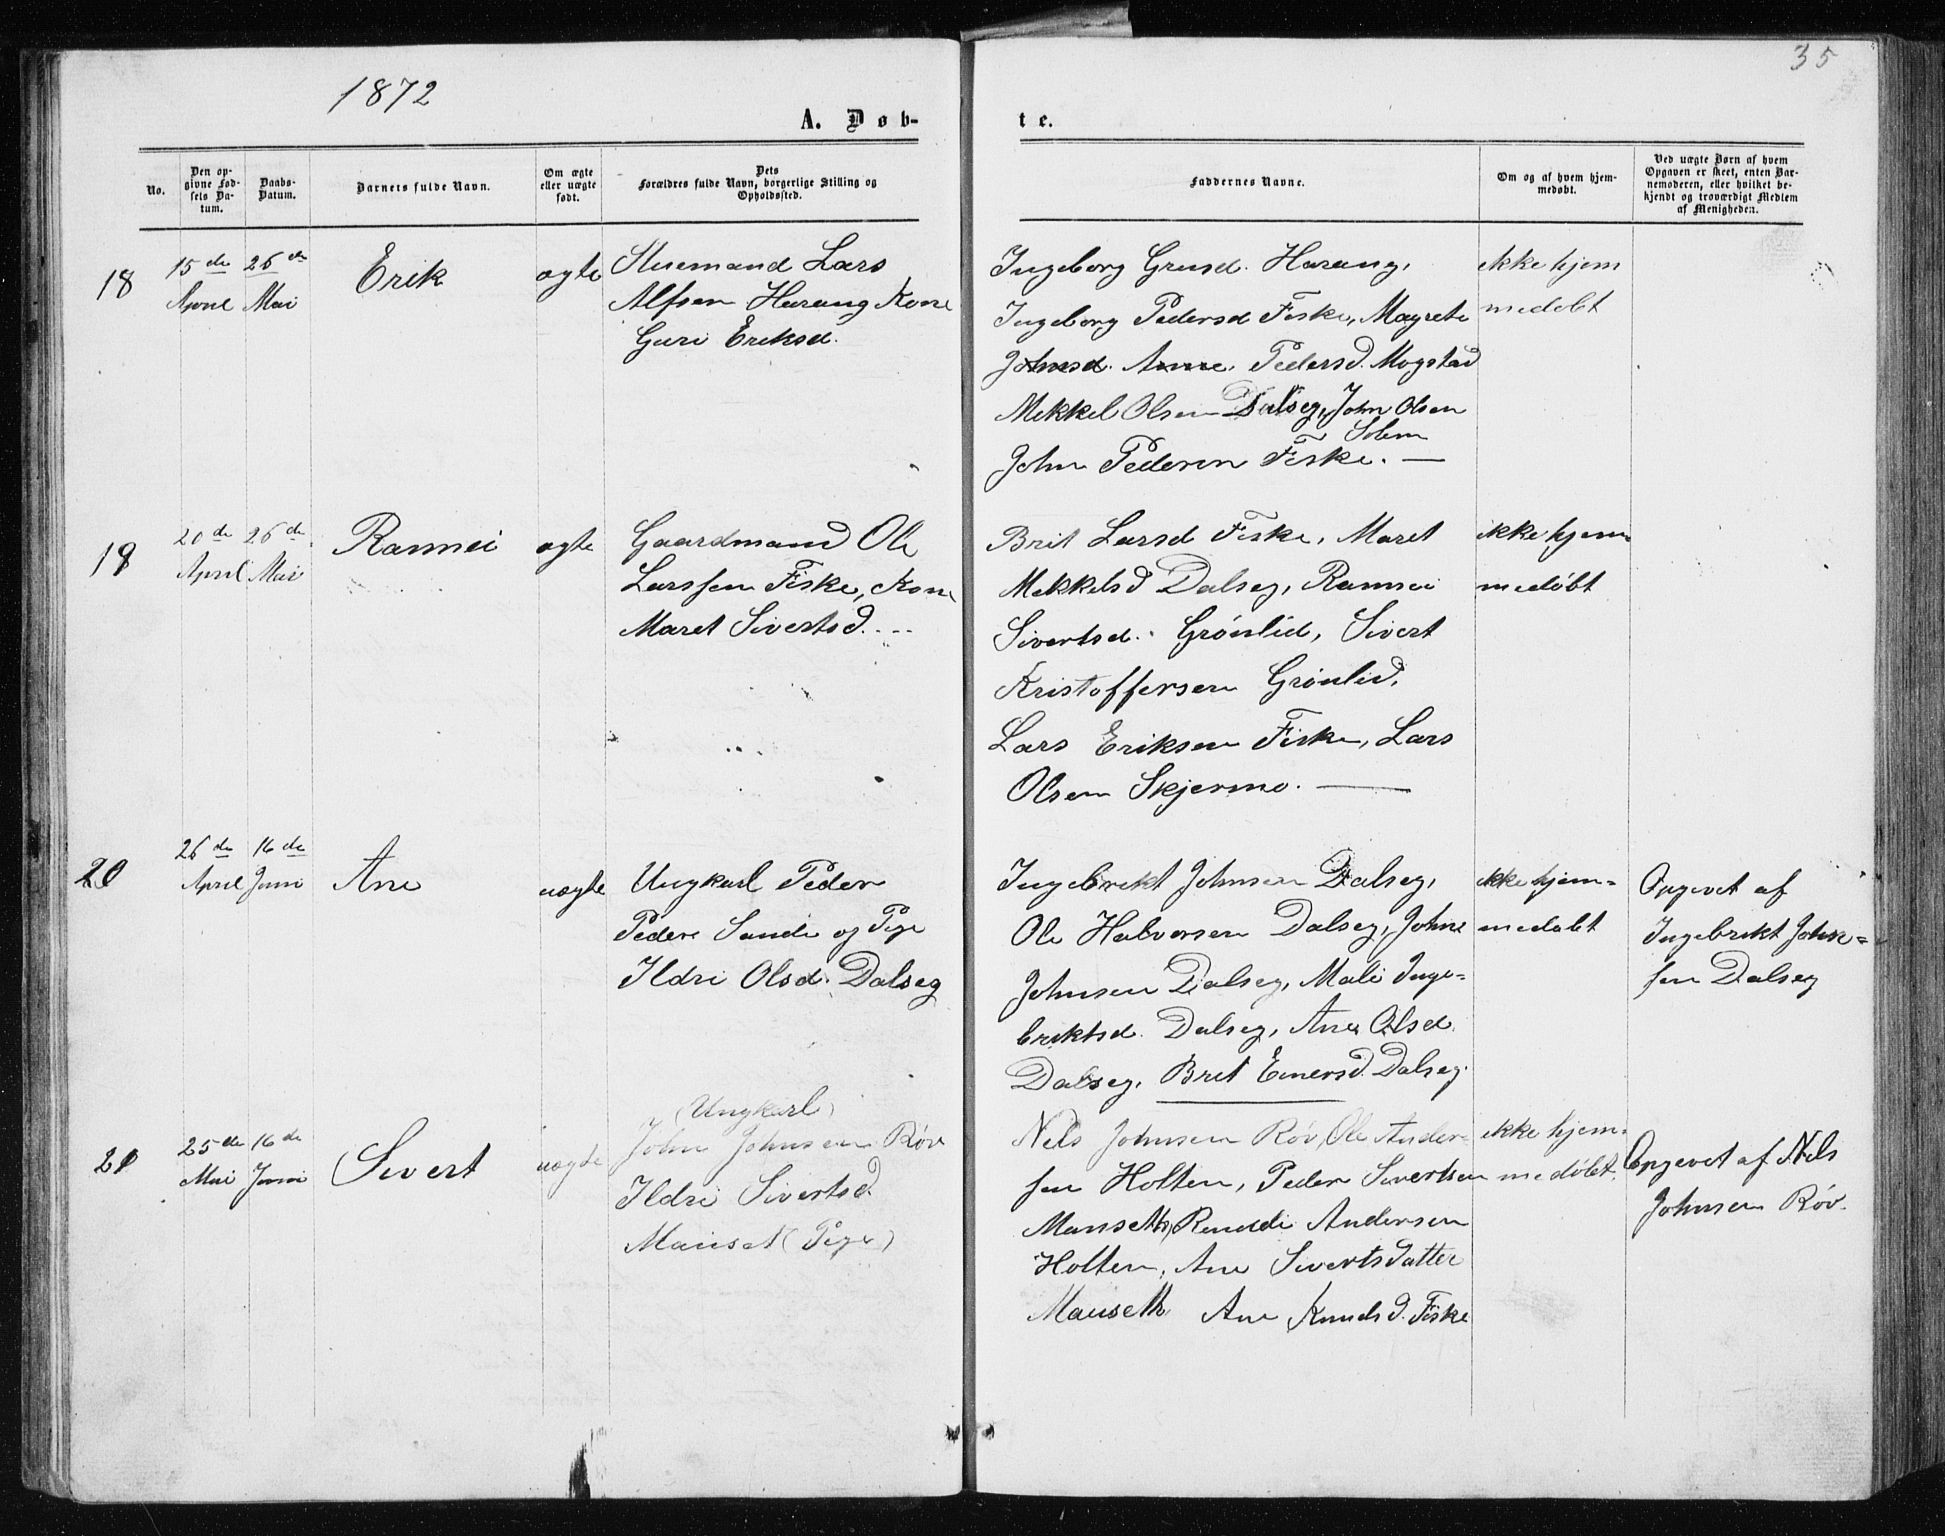 1872
35
A. Døb-
te.
No.
Den op-
givne Fød-
sels Da-
tum.
Daabs-
Datum.
Barnets fulde Navn.
Om ægte
eller uægte
født.
Dets
Forældres fulde Navn, borgerlige Stilling og
Opholdssted.
Faddernes Navne.
Om og af hvem hjem-
medøbt.
Ved uægte Børn af hvem
Opgaven er skeet, enten Bar-
nemoderen, eller hvilket be-
kjendt og troværdigt Medlem
af Menigheden.
18
15de April
26de Mai
Erik
ægte
Husmand Lars
Alfsen Harang Kone
Guri Eriksd.
Ingeborg Grusd. Harang,
Ingeborg Pedersd Fiske, Magrete
Johnsd. Anne. Pedersd. Mogstad
Mekkel Olsen Dalseg, John Olsen
Solem
John Pedersen Fiske. —
ikke hjem
medøbt
19
20de April
26de Mai
Rannei
ægte
Gaardmand Ole
Larssen Fiske, Kone
Maret Sivertsd.
Brit Larsd Fiske, Maret
Mekkelsd Dalseg, Rannei
Sivertsd. Grönlid, Sivert
Kristoffersen Grönlid,
Lars Eriksen Fiske, Lars
Olsen Skjermo. —
ikke hjem-
medøbt
20
26de April
16de Juni
Ane
uægte
Ungkarl Peder
Peders Sande og Pige
Ildri Olsd. Dalseg
Ingebrikt Johnsen Dalseg,
Ole Halvorsen Dalseg, John
Johnsen Dalseg, Mali Inge-
briktsd. Dalseg, Ane Olsd
Dalseg, Brit Einersd. Dalseg.
ikke hjem-
medøbt
Opgevet af
Ingebrikt John-
sen Dalseg
21
25de Mai
16de Juni
Sivert
uægte
(Ungkarl)
John Johnsen Röv
Ildri Sivertsd.
Mauset (Pige)
Nils Johnsen Röv, Ole Ander-
sen Holten, Peder Sivertsen
Mauseth, Randi Andersen
Holten, Ane Sivertsdatter
Mauseth Ane Knudsd. Fiske
ikke hjem-
medøbt.
Opgevet af Nils
Johnsen Röv.